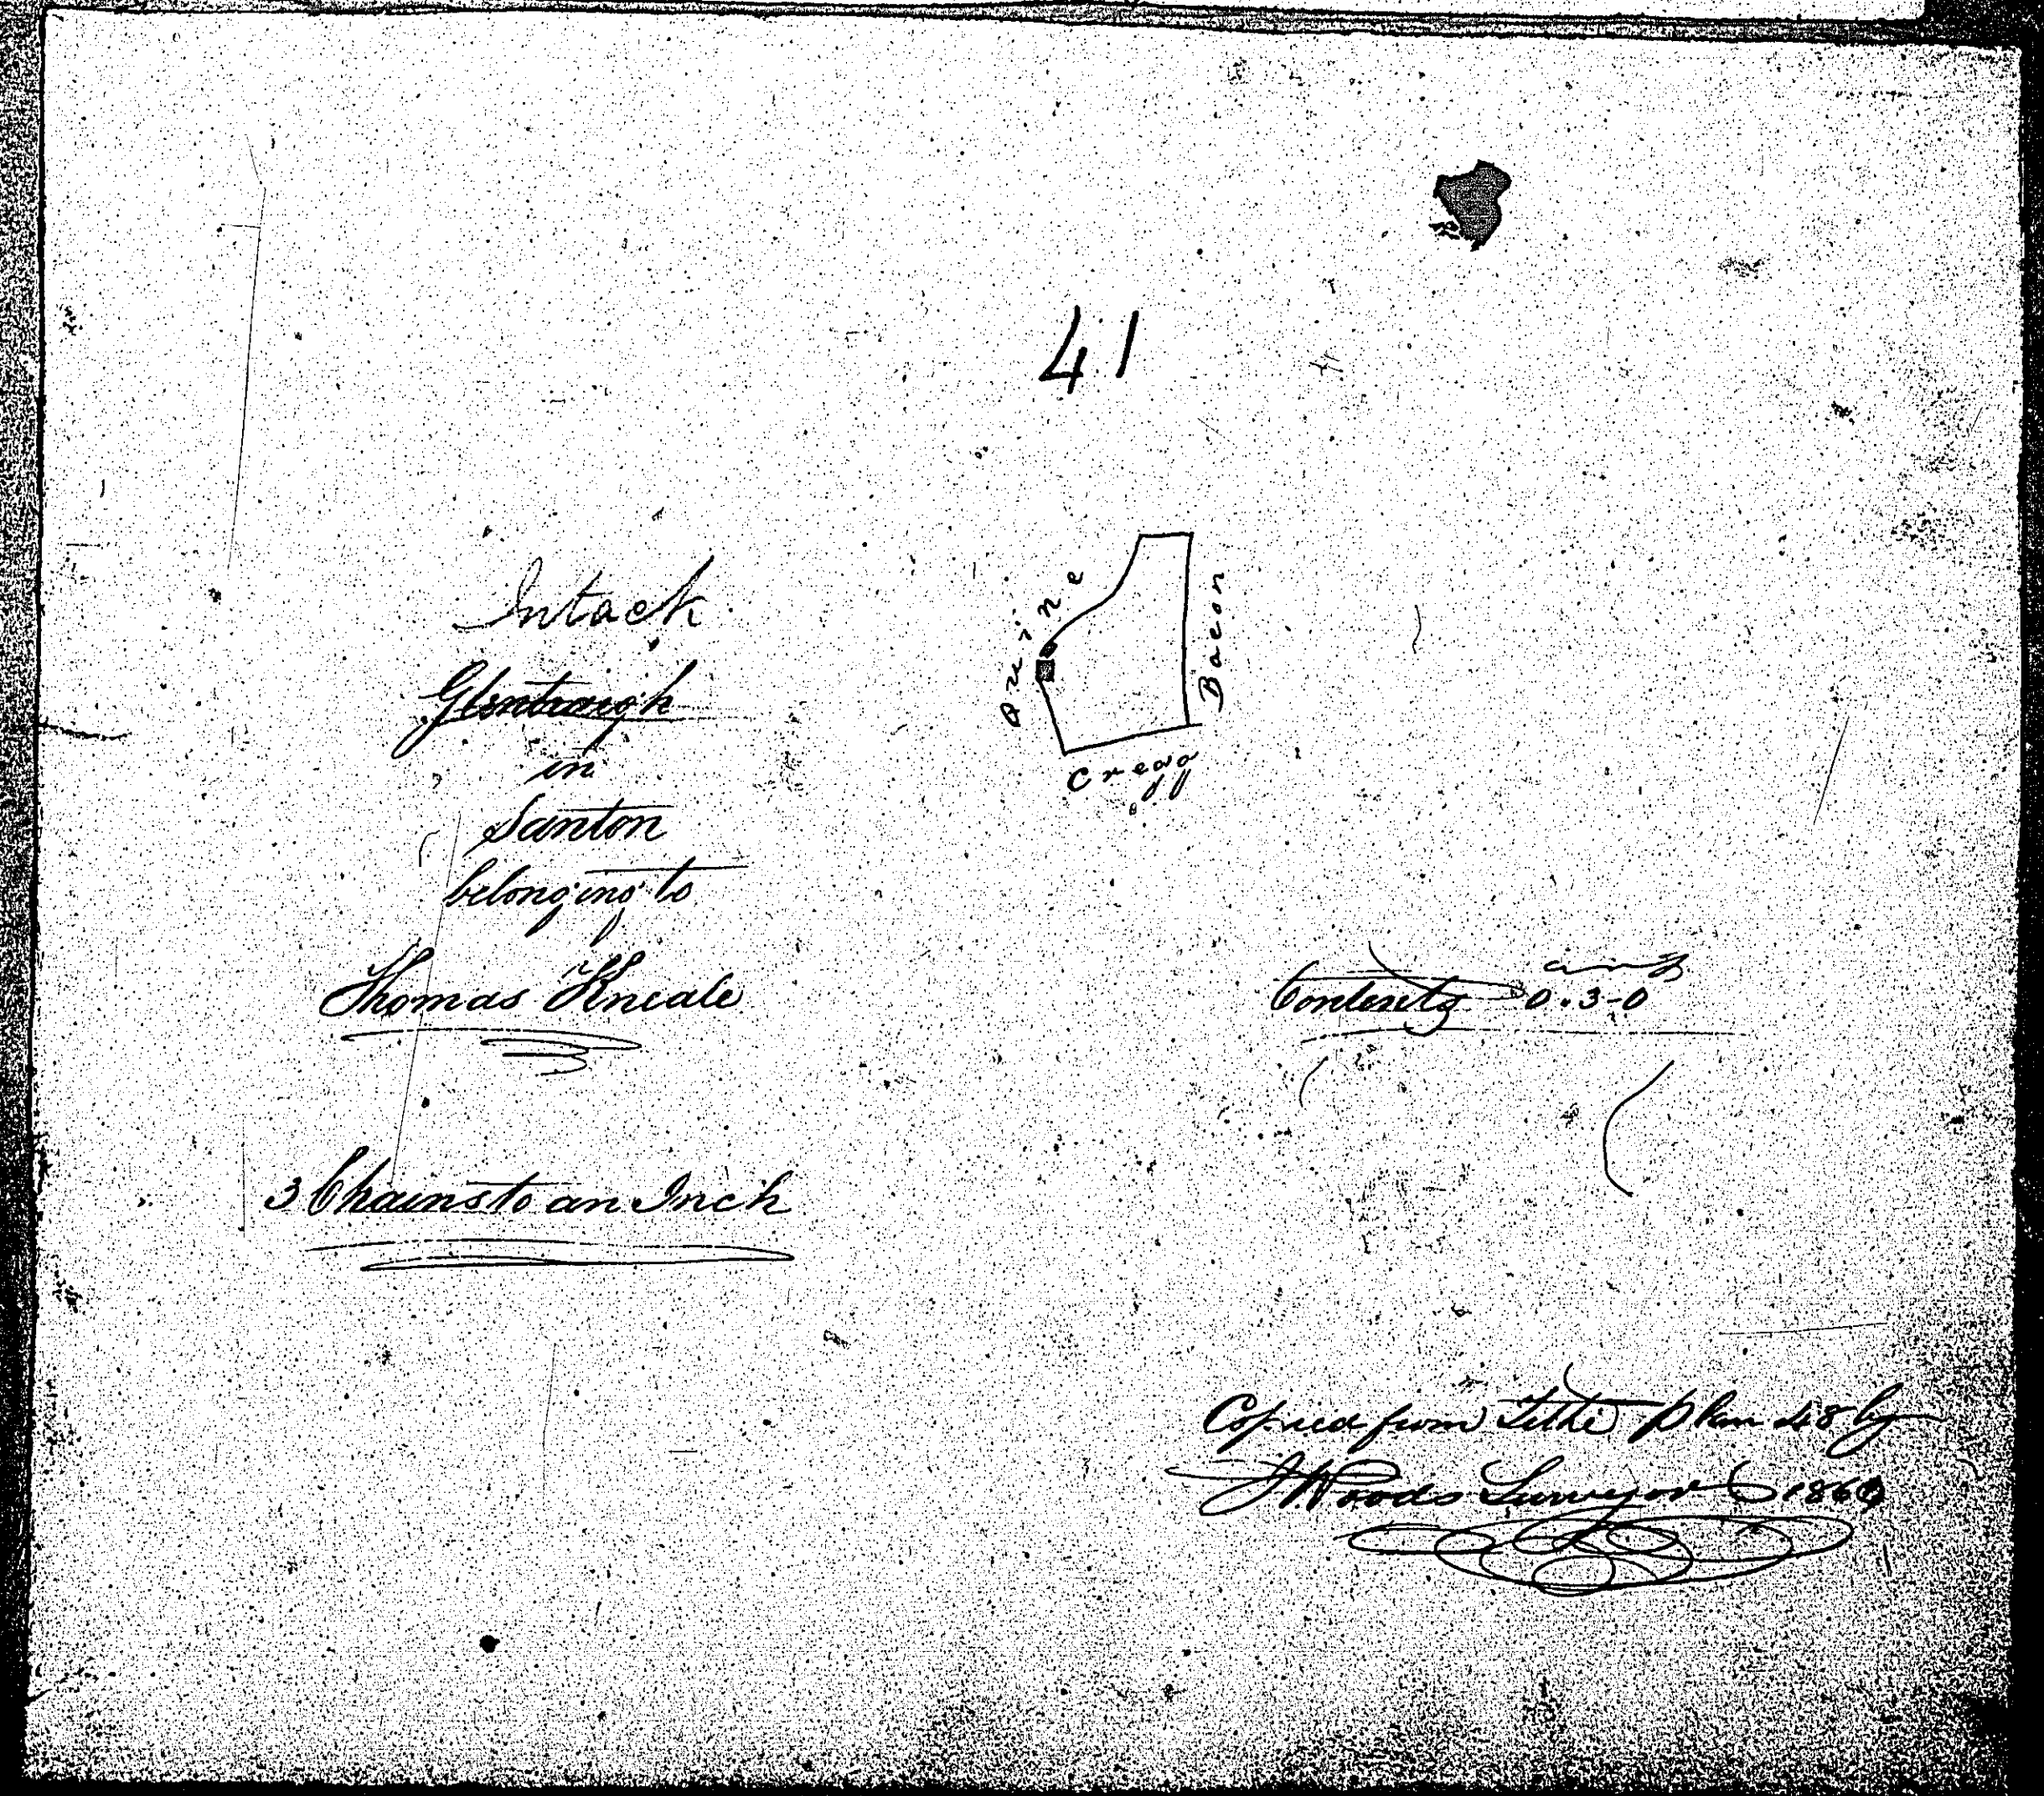 41
Intack
Glentraugh
in
Santon
belonging to
Thomas Kneale
3 Chains to an Inch
Quine
Bacon
Cregg
Contents 0.3-0
Copied from Tithe plan 48 by
J Woods Surveyor 1860